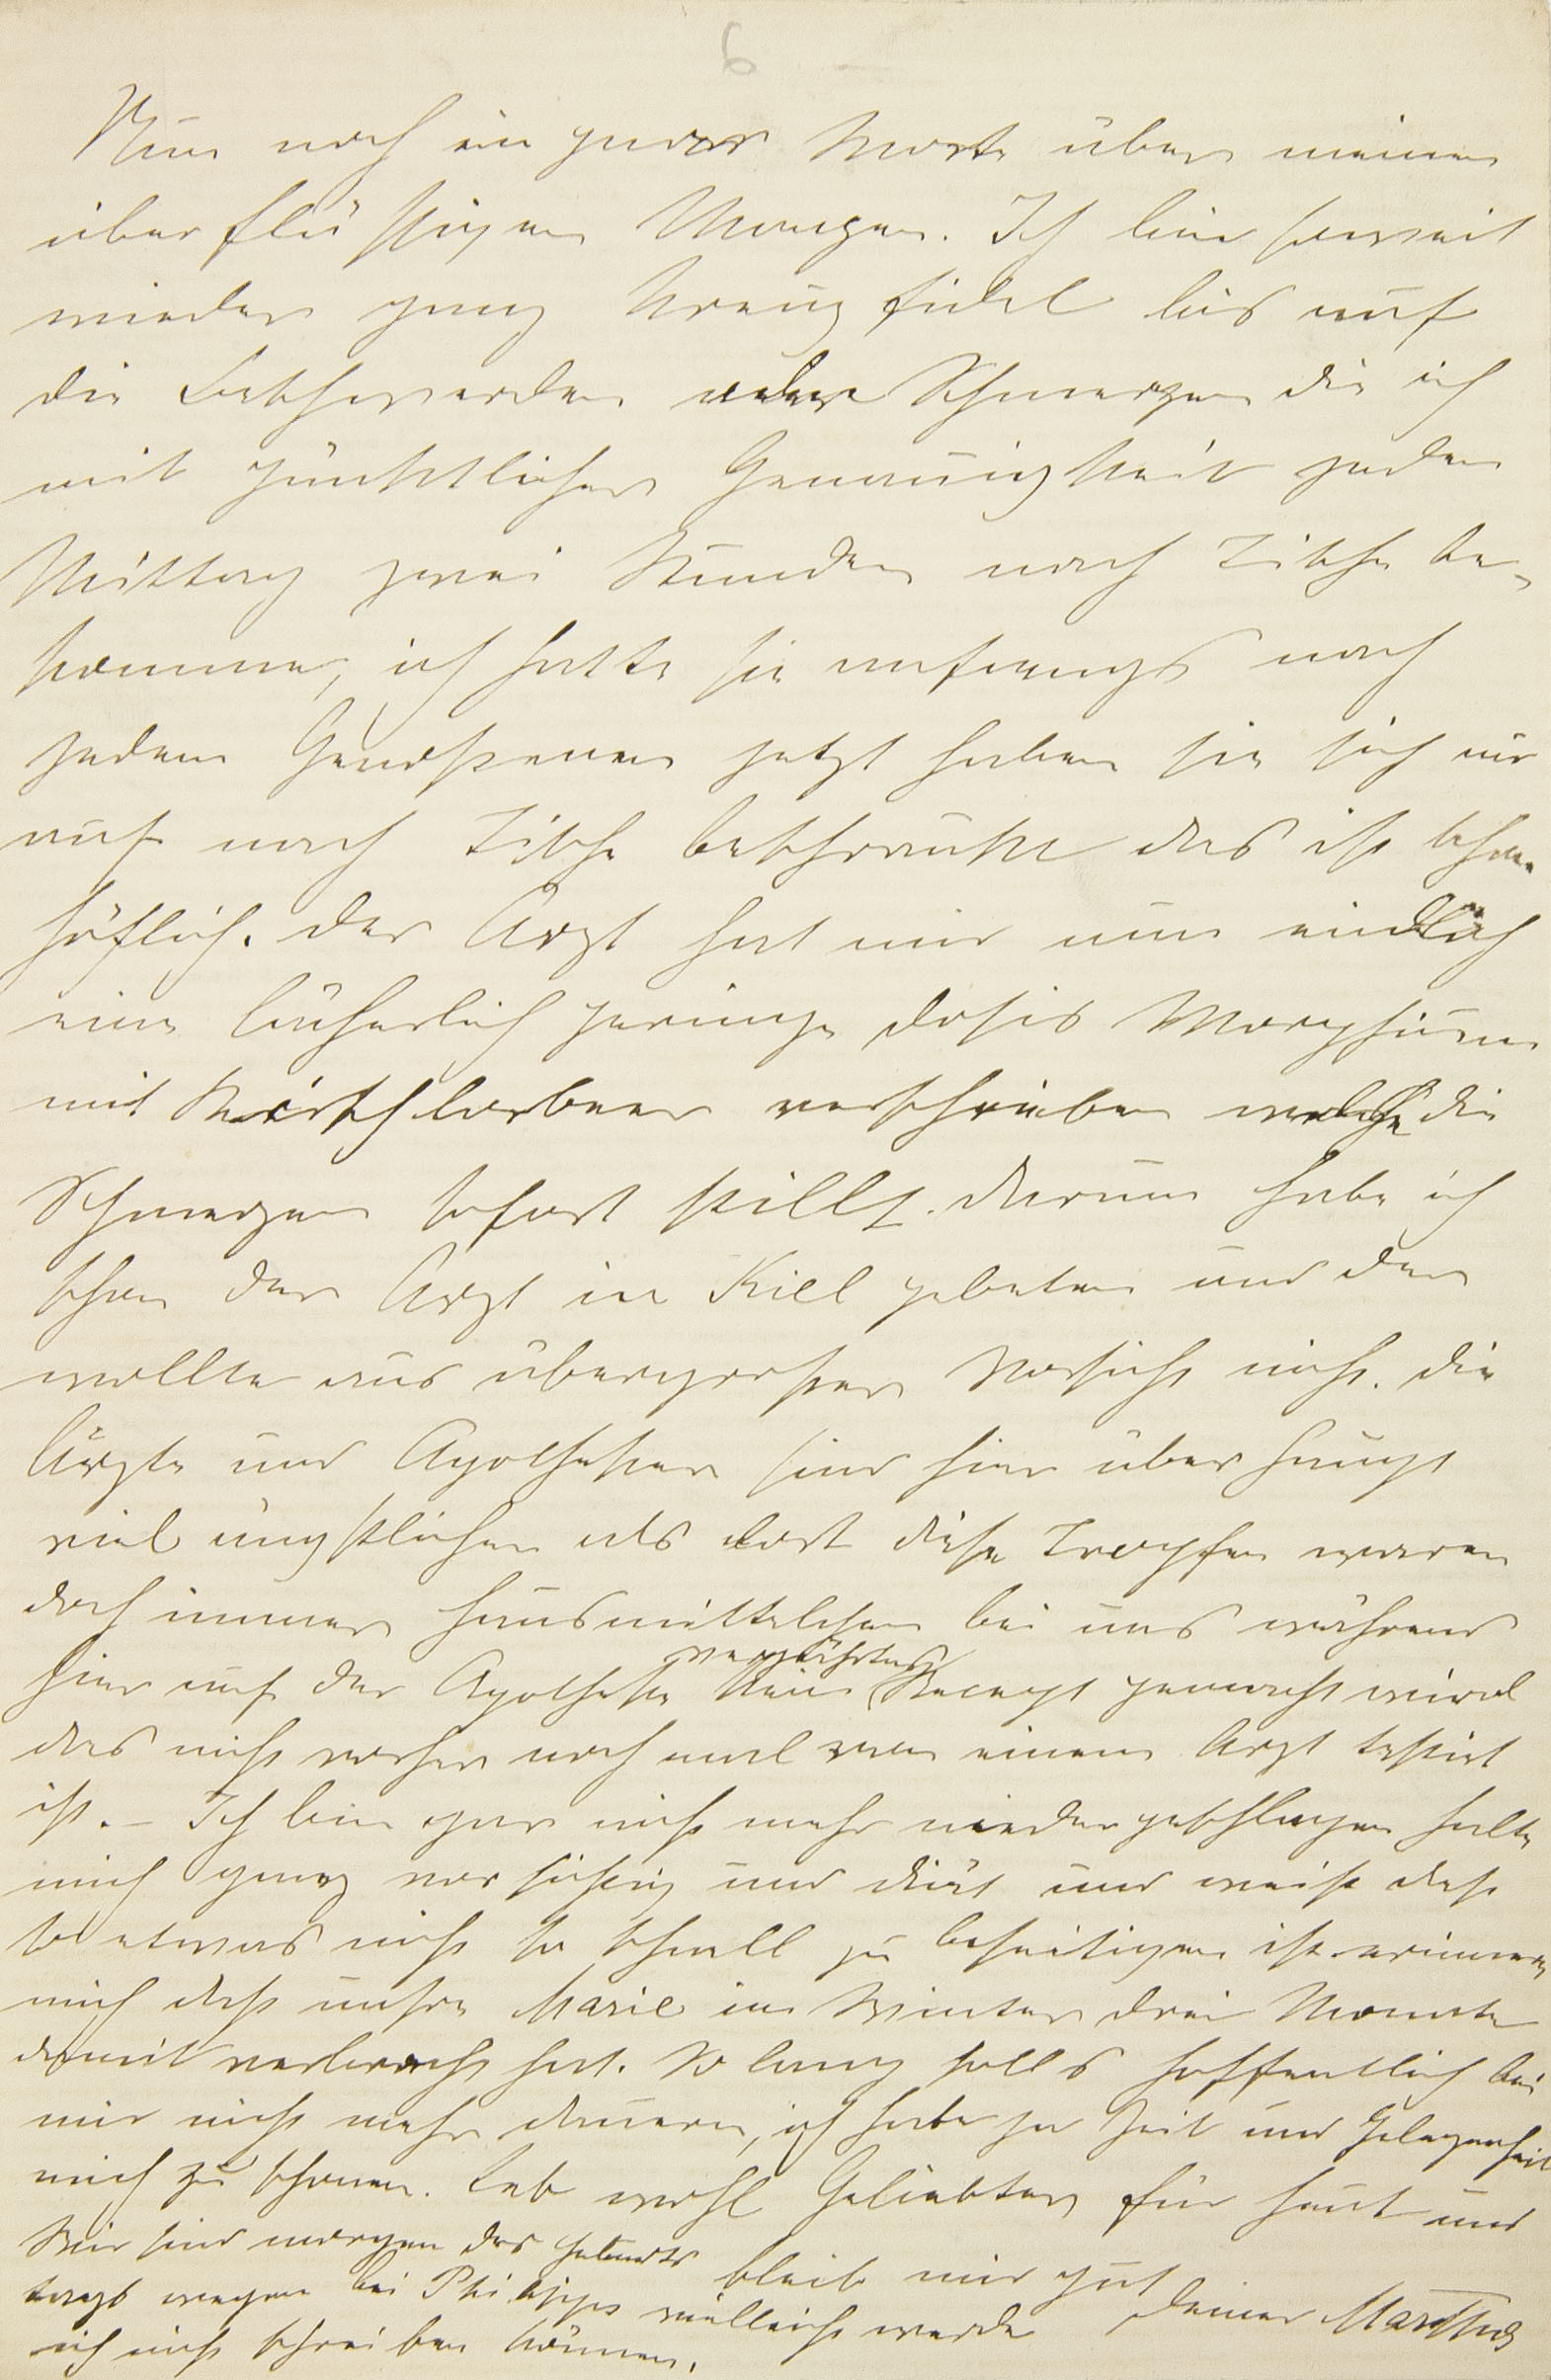 6
Nun noch ein paar Worte über meinen
überflüssigen Magen. Ich bin soweit
wieder ganz kreuzfidel bis auf
die Beschwerden oder Schmerzen die ich
mit pünktlicher Genauigkeit jeden
Mittag zwei Stunden nach Tische be-
komme, ich hatte sie anfangs nach
jedem Genossenen jetzt haben sie sich nur
auf nach Tische beschränkt das ist schon
höflich. Der Arzt hat mir nun endlich
eine lächerlich geringe Dosis Morphium
mit Kirschlorbeer verschrieben welche die
Schmerzen sofort stillt. Darum habe ich
schon den Arzt in Kiel gebeten und der
wollte aus übergrosser Vorsicht nicht. Die
Ärzte und Apotheker sind hier überhaupt
viel ängstlicher als dort diese Tropfen waren
doch immer Hausmittelchen bei uns während
hier auf der Apotheke kein verjährtes Recept gemacht wird
das nicht vorher noch mal von einem Arzt testirt
ist. – Ich bin gar nicht mehr niedergeschlagen halte
mich ganz vorsichtig und diät und weiss dass
so etwas nicht so schnell zu beseitigen ist erinnere
mich dass unsre Marie im Winter drei Monate
damit verbracht hat. So lang solls hoffentlich bei
mir nicht mehr dauern, ich habe ja Zeit und Gelegenheit
mich zu schonen. Leb wohl Geliebter für heut und
bleib mir gut
Deiner Martha
Wir sind morgen des Geburts
tags wegen bei Philipps vielleicht werde
ich nicht schreiben können.